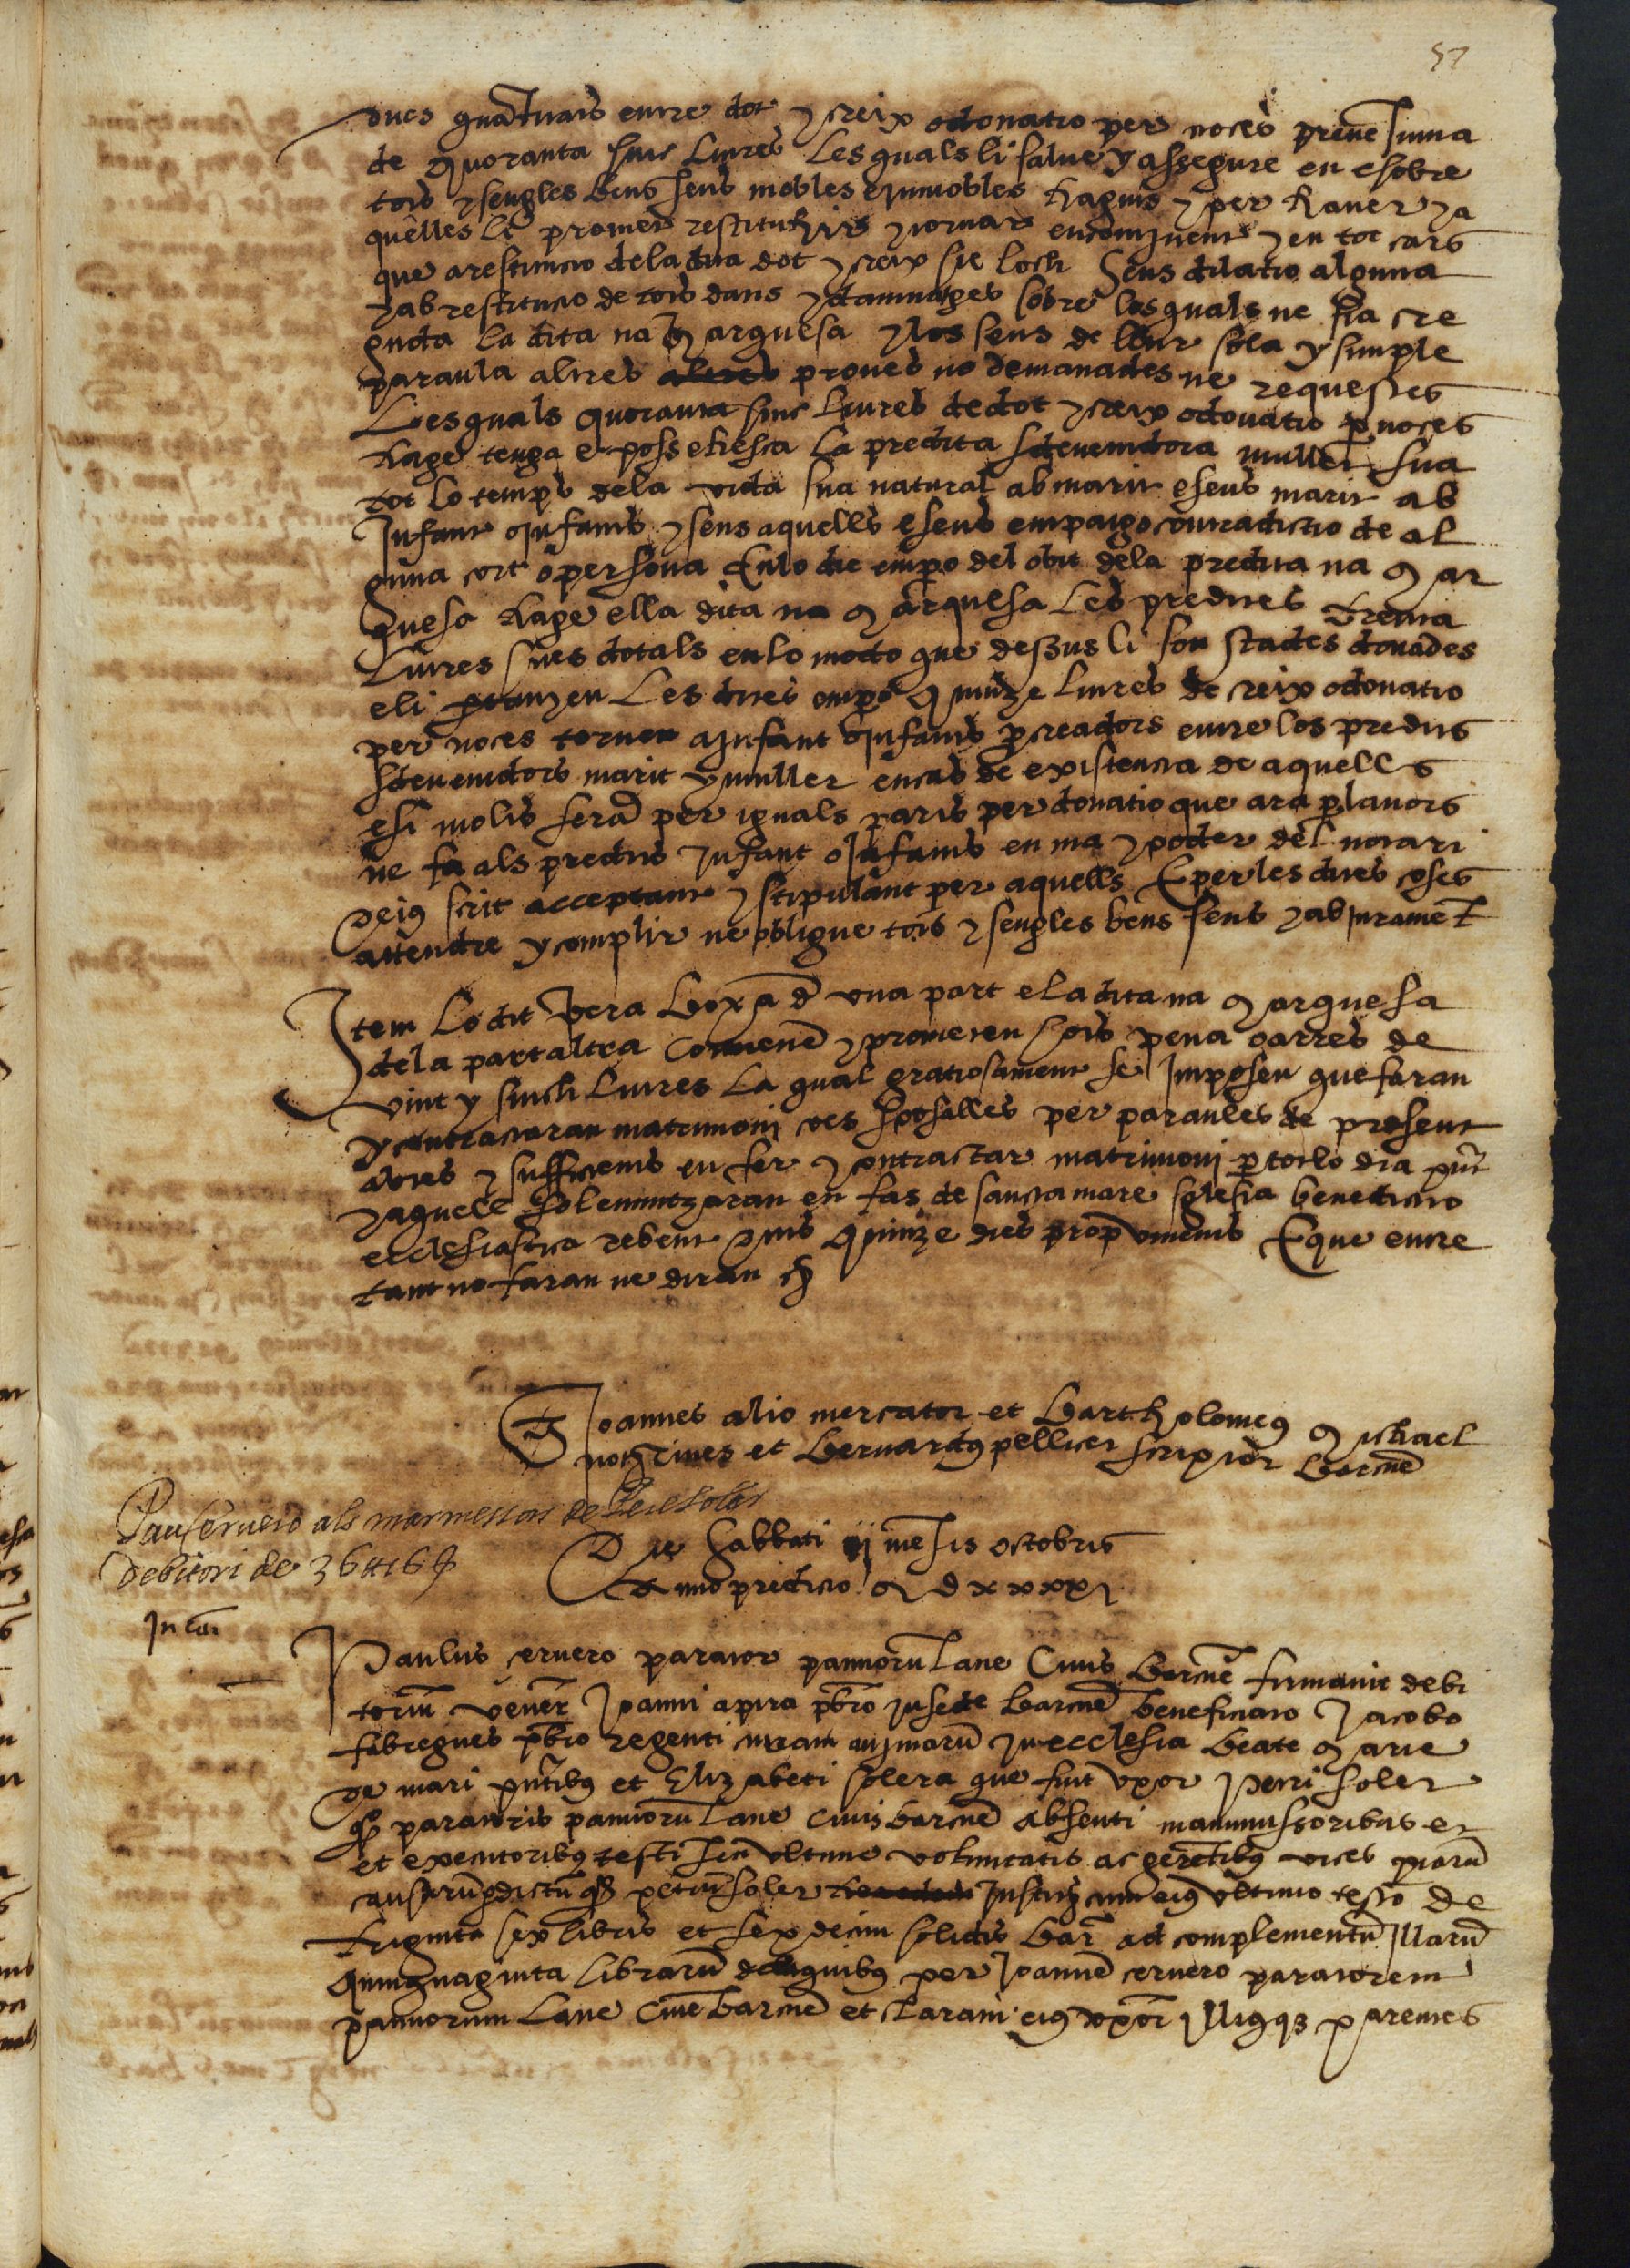 57
dues quantitats entre dot y creix o donatio per noces prenē suma
de Quoranta sinc liures Les quals li salue y assegure en e sobre
tots y sengles bens seus mobles e immobles haguts y per hauer ya
quelles li promet restituhir y tornar encontinent y en tot cars
que a restitucio dela dita dot y creix sie loch Sens dilatio alguna
y ab restitucio de tots dans y damnatges sobre los quals ne sia cre
guda la dita na Marquesa y los seus de llur sola y simple
paraula altres proues no demanades ne requestes
Les quals quoranta sinc liures de dot y creix o donatio p noces
hage tenga e possehesca la predita sdeuenidora muller sua
tot lo temps dela vida sua natural ab marit e sens marit ab
Infant o Infants y sens aquells e sens empaig o contradictio de al
guna cort o persona En lo die empo del obit dela predita na Mar
quesa hage ella dita na Marquesa les predites trenta
liures sues dotals en lo modo que dessus li son stades donades
e li ptanyen Les dites empo Quinze liures de creix o donatio
per noces tornen a Infant o Infants pcreadors entre los predits
sdeuenidors marit y muller en cas de existencia de aquells
e si molts seran per iguals parts per donatio que ara p lauors
ne fa als predits Infant o Infants en ma y poder del notari
deius scrit acceptant y stipulant per aquells E per les dites coses
attendre y complir ne obligue tots y sengles bens seus y ab Iurament
Item lo dit Pera Boxa d vna part e la dita na Marquesa
dela part altra conuenē y prometen sots pena o arres de
vint y sinch liures La qual gratiosament se Imposen que faran
y contractaran matrimoni ves sposalles per paraules de present
abtes y sufficients en fer y contractar matrimoni p tot lo dia pnt
y aquell solemnitzaran en fas de sancta mare sglesia benedictio
ecclesiastica rebent dins Quinze dies prop vinents E que entre
tant no faran ne diran
Ts Ioannes alio mercator et Bartholomeus Michael
not ciues et Bernardus pellicer scriptor barcñe
Pau seruero als marmessors de Pere Soler
Debitori de 36 tt 16 s
Die Sabbati ij mensis octobris
Anno predicto M D xxxxj
Paulus ceruero parator pannorū lane Ciuis Barcñe firmauit debi
toriū venert Ioanni apira pbro in sede barcñe beneficiato Iacobo
fabregues pbro regenti curam animarū in ecclesia beate Marie
de mari pntibus et Elizabeti solera que fuit vxor petri soler
q paratoris pannorū lane ciuis barcñe absenti manumissoribus et
et executoribus testi seu vltime voluntatis ac gerētibus vices piarū
causarū p dictū q petrū soler Institz cum eius vltimo testo de
triginta sex libris et sexdecim solidis bar ad complementū Illarū
quinquaginta librarū de quibus per Ioannē ceruero paratorem
pannorum lane Ciuē barcñe et claram eius vxorē Illiusqz parentes